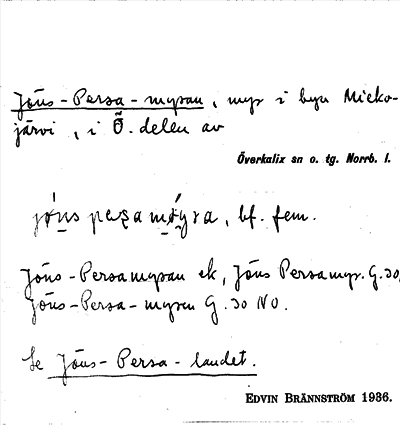 Jöns-Persa-mysan, myr i byn Mieko-
järvi, i Ö. delen av
Överkalix sn o. tg. Norrb. l.
bf. fem.
Jöns-Persamyran ek, Jöns Persamyr. G.30,
Jöns-Persa-myren G.30 NO.
Se Jöns-Persa-landet.
EDVIN BRÄNNSTRÖM 1936.